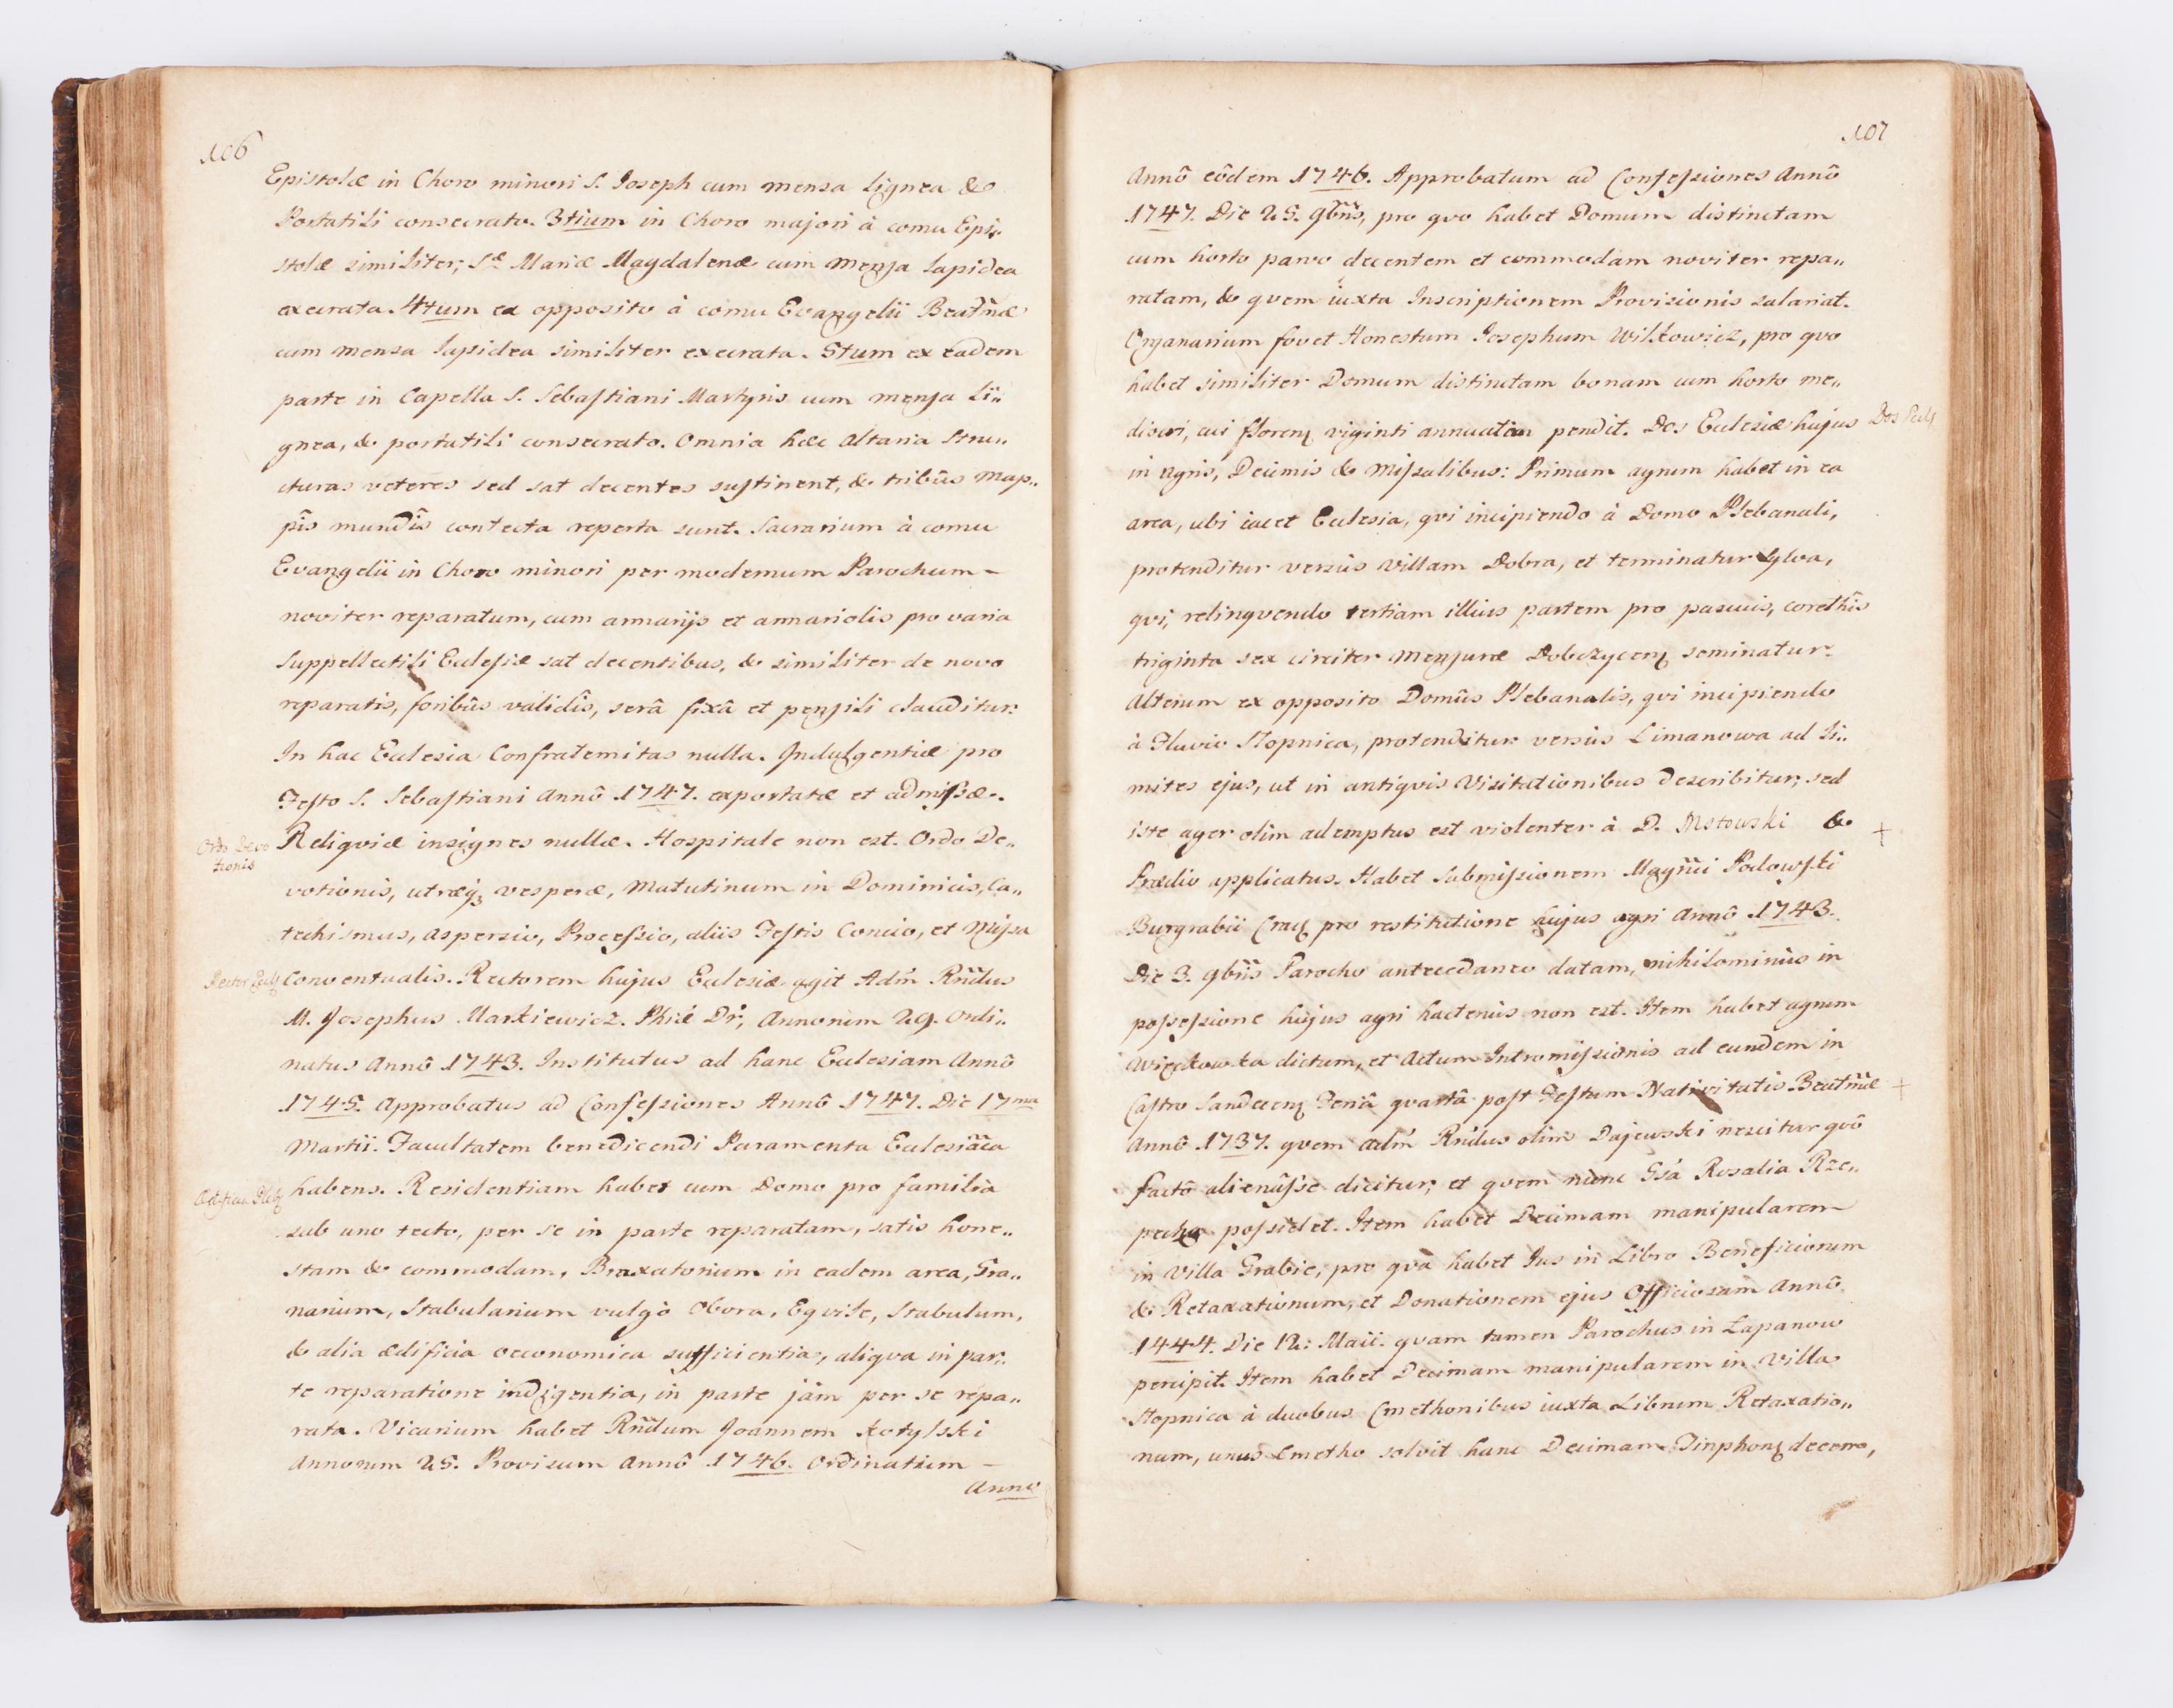 106
Epistolæ in Choro minori S. Joseph cum mensa lignea &
Portatili consecrato. 3tium in Choro majori à cornu Epi„
stolæ similiter; Sæ Mariæ Magdalenæ cum mensa lapidea
execrata. 4tum ex opposito à cornu Evangelii Beatm̃æ
cum mensa lapidea similiter execrata. 5tum ex eadem
parte in Capella S. Sebastiani Martyris cum mensa li„
gnea, & portatili consecrato. Omnia hæc altaria stru„
cturas veteres sed sat decentes sustinent, & tribûs map„
pîs mundîs contecta reperta sunt. Sacrarium à cornu
Evangelii in Choro minori per modernum Parochum –
noviter reparatum, cum armarijs et armariolis pro varia
suppellectili Ecclesiæ sat decentibus, & similiter de novo
reparatis, foribûs validîs, serâ fixâ et pensili clauditur.
In hac Ecclesia Confraternitas nulla. Indulgentiæ pro
Festo S. Sebastiani Annô 1747. exportatæ et admissæ.
Ordo Devo
tionis
Reliqviæ insignes nullæ. Hospitale non est. Ordo De„
votionis, utræq; vesperæ, Matutinum in Dominicis, Ca„
techismus, aspersio, Processio, aliis Festis Concio, et Missa
Rector Eccl
Conventualis. Rectorem hujus Ecclesiæ agit Adm̃ Rñdus
M. Josephus Markiewicz. Phiæ Dr, Annorum 29. Ordi„
natus Annô 1743. Institutus ad hanc Ecclesiam Annô
1745. Approbatus ad Confessiones Annô 1747. Die 17ma
Martii. Facultatem benedicendi Paramenta Ecclesiãca
habens. Residentiam habet cum Domo pro familia
sub uno tecto, per se in parte reparatam, satis hone„
stam & commodam, Braxatorium in eadem area, Gra„
narium, Stabularium vulgò Obora, Eqvile, Stabulum,
& alia ædificia oeconomica sufficientia, aliqva in par„
te reparatione indigentia, in parte jàm per se repa„
rata. Vicarium habet Rñdum Joannem Kotylski
Annorum 25. Provisum Annô 1746. Ordinatum –
Anno
107
Annô eôdem 1746. Approbatum ad Confessiones Annô
1747. Die 25. 9brĩs, pro qvo habet Domum distinctam
cum horto parvo decentem et commodam noviter repa„
ratam, & qvem iuxta Inscriptionem Provisionis salariat.
Organarium fovet Honestum Josephum Wilkowicz, pro qvo
habet similiter Domum distinctam bonam cum horto me„
diocri, cui floren viginti annuatim pendit. Dos Ecclesiæ hujus
Dos Eccl
in agris, Decimis & Missalibus: Primum agrum habet in ea
area, ubi iacet Ecclesia, qvi incipiendo à Domo Plebanali,
protenditur versùs villam Dobra, et terminatur Sylva,
qvi, relinqvendo tertiam illius partem pro pascuis, corethîs
triginta sex circiter mensuræ Dobczycen seminatur.
Alterum ex opposito Domûs Plebanalis, qvi incipiendo
à Fluvio Słopnica, protenditur versùs Limanowa ad li„
mites ejus, ut in antiqvis Visitationibus describitur; sed
iste ager olim ademptus est violenter à D. Mstowski &
Prædio applicatus. Habet submissionem Magñci Padowski
Burgrabii Crac pro restitutione hujus agri Annô 1743.
Die 3. 9brĩs Parocho antecedaneo datam, nihilominùs in
possessione hujus agri hactenùs non est. Item habet agrum
dictum, et Actum Intromissionis ad eundem in
Castro Sandecen Feriâ qvartâ post Festum Nativitatis Beatm̃æ
Annô 1737. qvem adm̃ Rñdus olim Dajewski nescitur qvô
factô alienâsse dicitur; et qvem nunc Gsa Rosalia Rze„
pecka possidet. Item habet Decimam manipularem
in Villa Grabie, pro qva habet Ius in Libro Beneficiorum
& Retaxationum, et Donationem ejus Officiosam Annô
1444. Die 12: Maii. qvam tamen Parochus in Łapanow
percipit. Item habet Decimam manipularem in Villa
Słopnica à duobus Cmethonibus iuxta Librum Retaxatio„
num, unus Cmetho solvit hanc Decimam Tinphon decem,